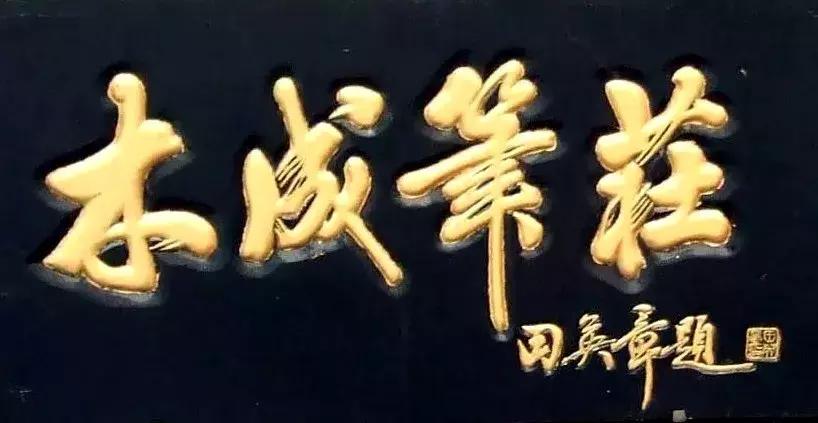 木成筆莊
田英章題